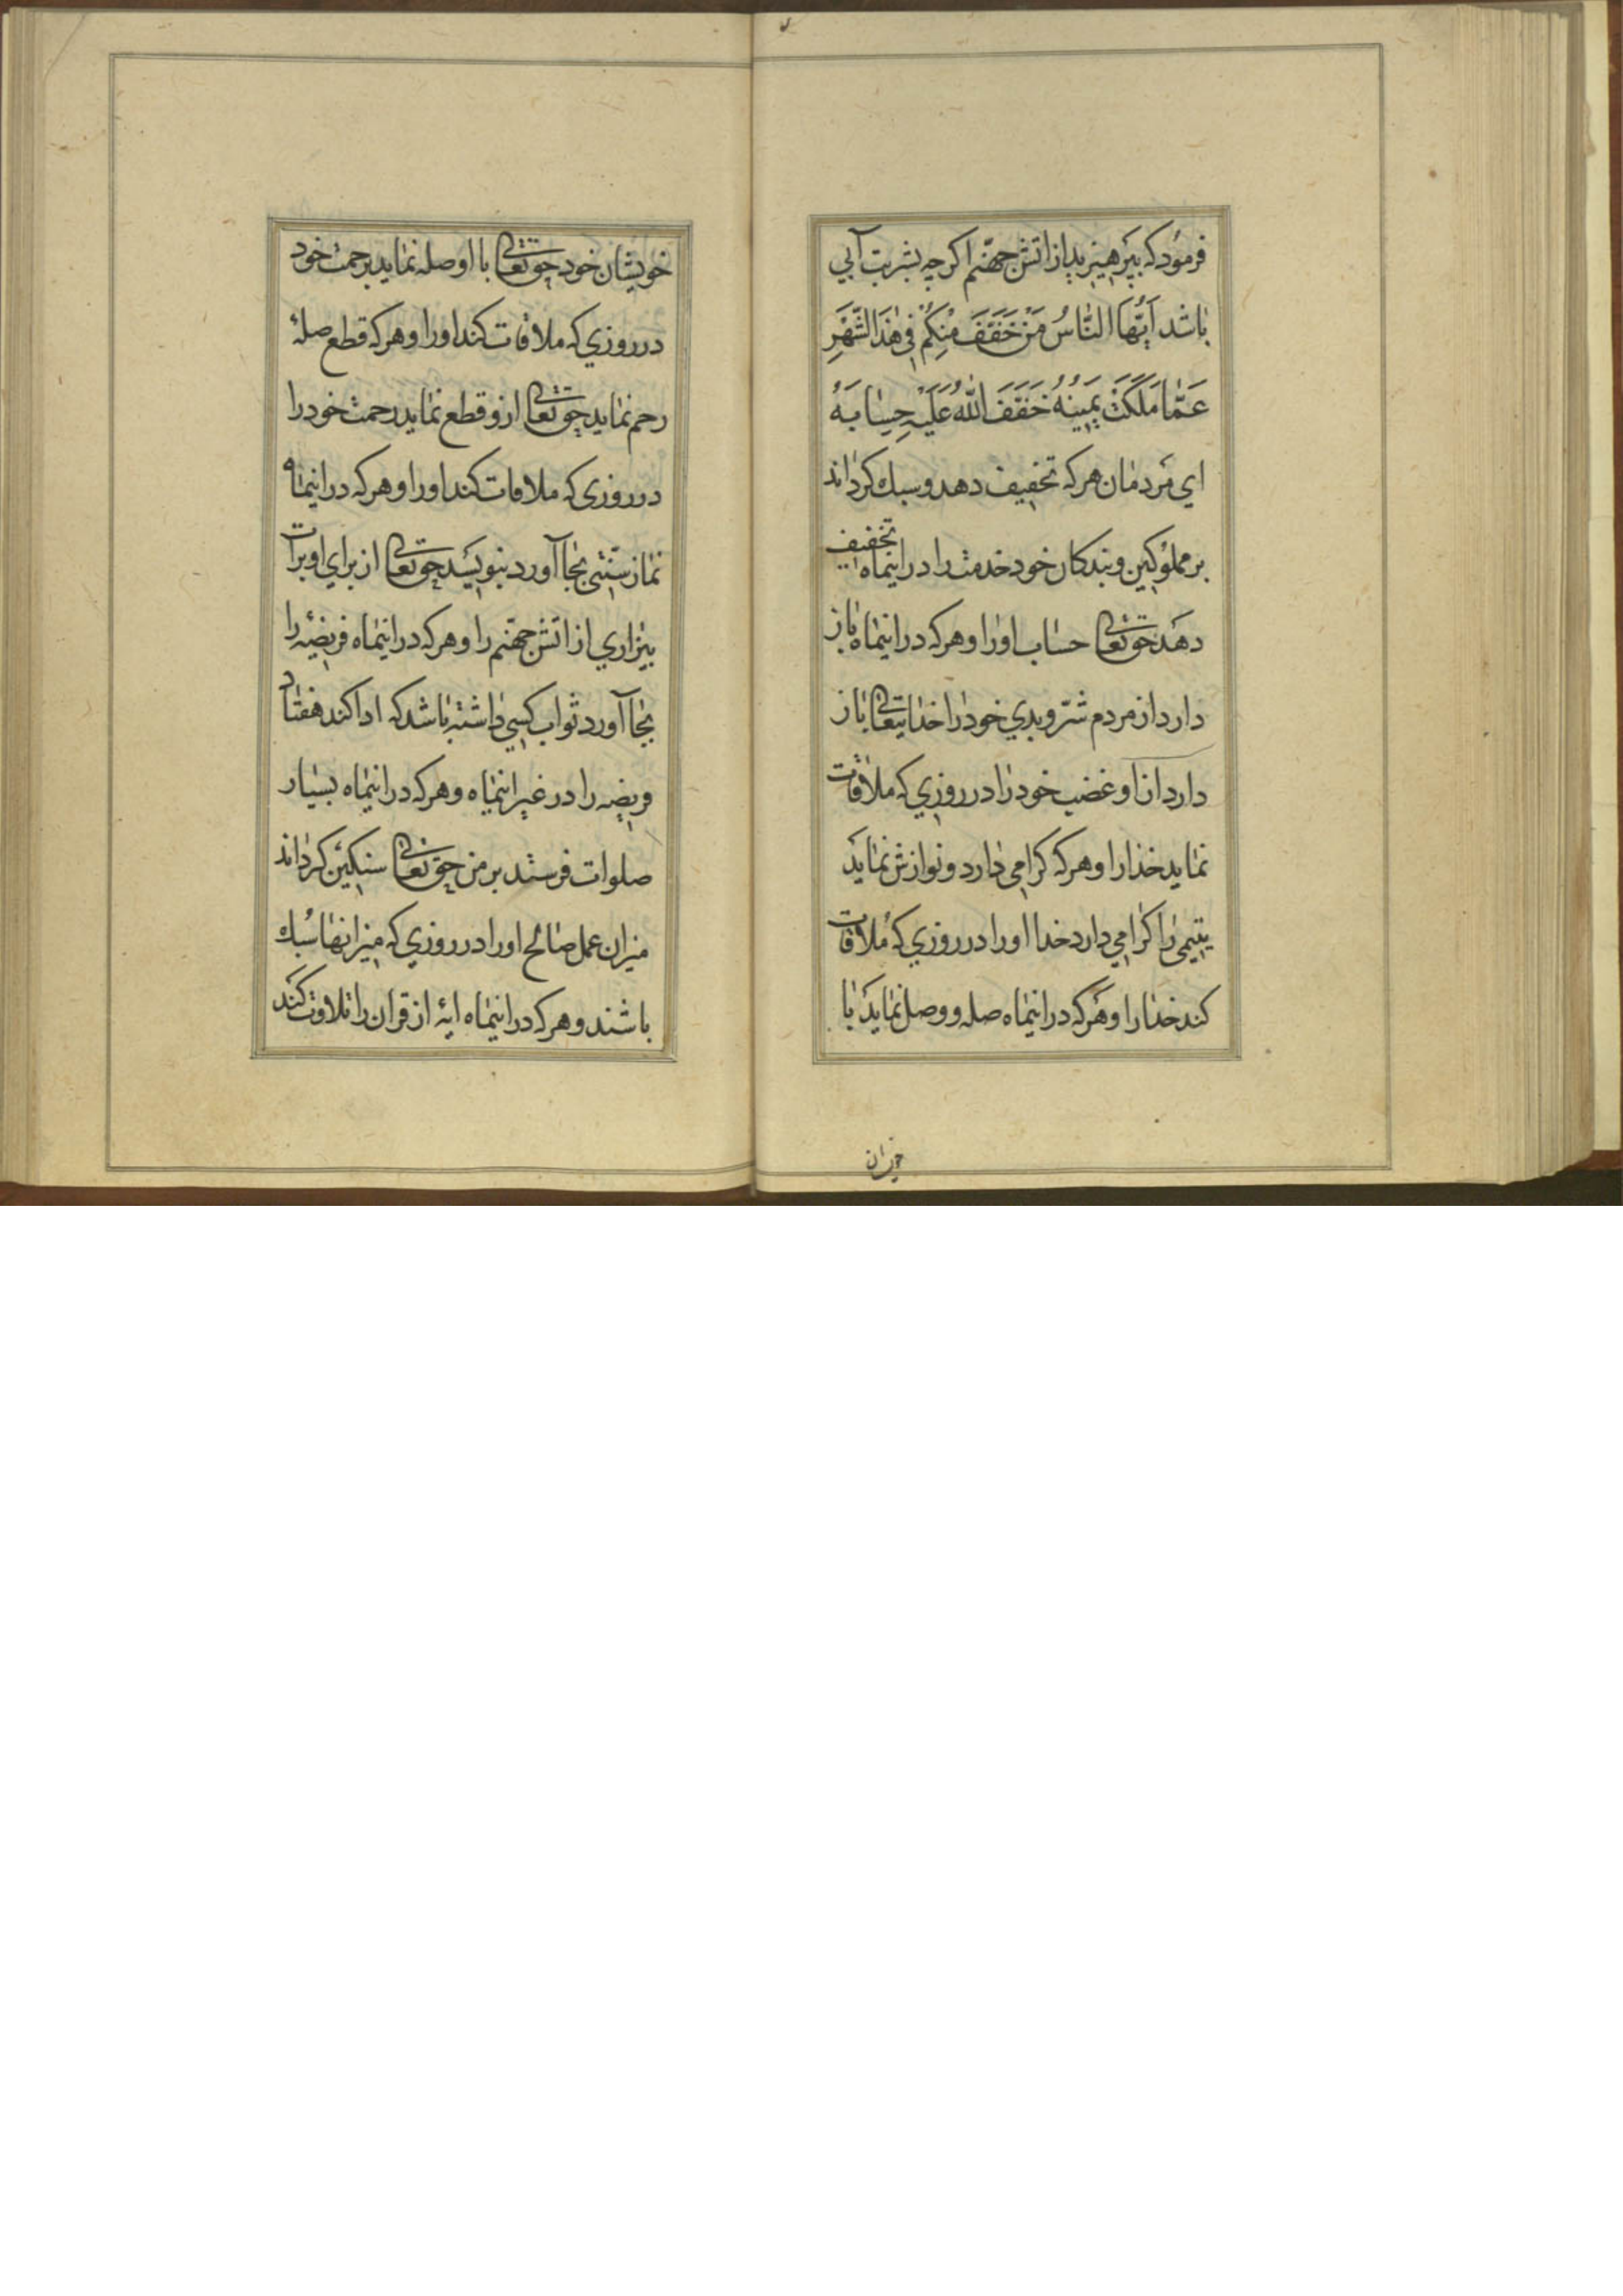 فرمود که بپرهیزید از اتش جهنم اکرچه بشربت آبی
باشد اَیُّهَا النّاسُ مَنْ خَفَّفَ مِنْکُمْ فِی هٰذَا الشَّهْرِ
عَمّا مَلَکَتْ یَمینُهُ خَفَّفَ اللّٰهُ عَلَیْهِ حِسابَهُ
ای مردمان هرکه تخفیف دهد و سبك کرداند
بر مملوکین و بندکان خود خدمت را در اینماه تخفیف
دهد حق تعالی حساب او را و هرکه در اینماه باز
دارد از مردم شرّ و بدی خود را خدایتعالی باز
دارد از او غضب خود را در روزی که ملاقات
نماید خدا را و هرکه کرامی دارد و نوازش نماید
یتیمی را کرامی دارد خدا او را در روزی که ملاقات
کند خدا را و هرکه در اینماه صله و وصل نماید با
خویشان خود حق تعالی با او صله نماید برحمت خود
در روزی که ملاقات کند او را و هرکه قطع صلهٔ
رحم نماید حق تعالی ازو قطع نماید رحمت خود را
در روزی که ملاقات کند او را و هرکه در اینماه
نماز سنّتی بجا آورد بنویسد حق تعالی از برای او برات
بیزاری از اتش جهنم را و هرکه در اینماه فریضهٔ را
بجا آورد ثواب کسی داشته باشد که ادا کند هفتاد
فریضه را در غیر اینماه و هرکه در اینماه بسیار
صلوات فرستد بر من حق تعالی سنکین کرداند
میزان عمل صالح او را در روزی که میزانها سُبك
باشند و هرکه در اینماه ایهٔ از قران را تلاوت کند